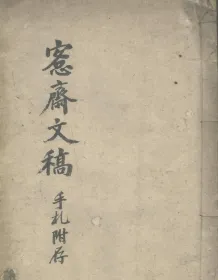 窓齋文稿
手札附存